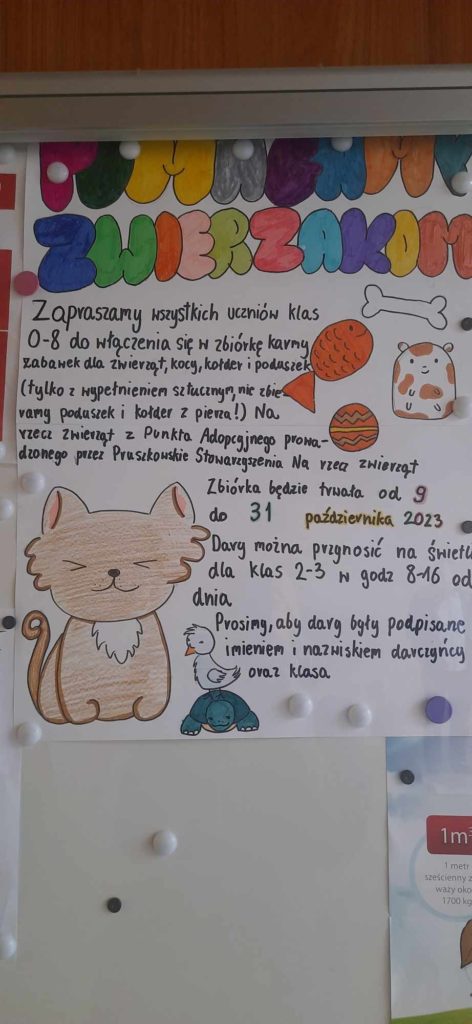 POMAGAMY
ZWIERZAKOM
Zapraszamy wszystkich uczniów klas
0-8 do włączenia się w zbiórkę karmy
zabawek dla zwierząt, kocy, kołder i poduszek
(tylko z wypełnieniem sztucznym, nie zbie-
ramy poduszek i kołder z pierza!) Na
rzecz zwierząt z Punktu Adopcyjnego prowa-
dzonego przez Pruszkowskie Stowarzyszenia Na rzecz zwierząt
Zbiórka będzie trwała od 9
do 31 października 2023
Dary można przynosić na świetli
dla klas 2-3 w godz 8-16 od
dnia
Prosimy, aby dary były podpisane
imieniem i nazwiskiem darczyńcy
oraz klasa
1m³
1 metr
sześcienny
waży oko
1700 kg